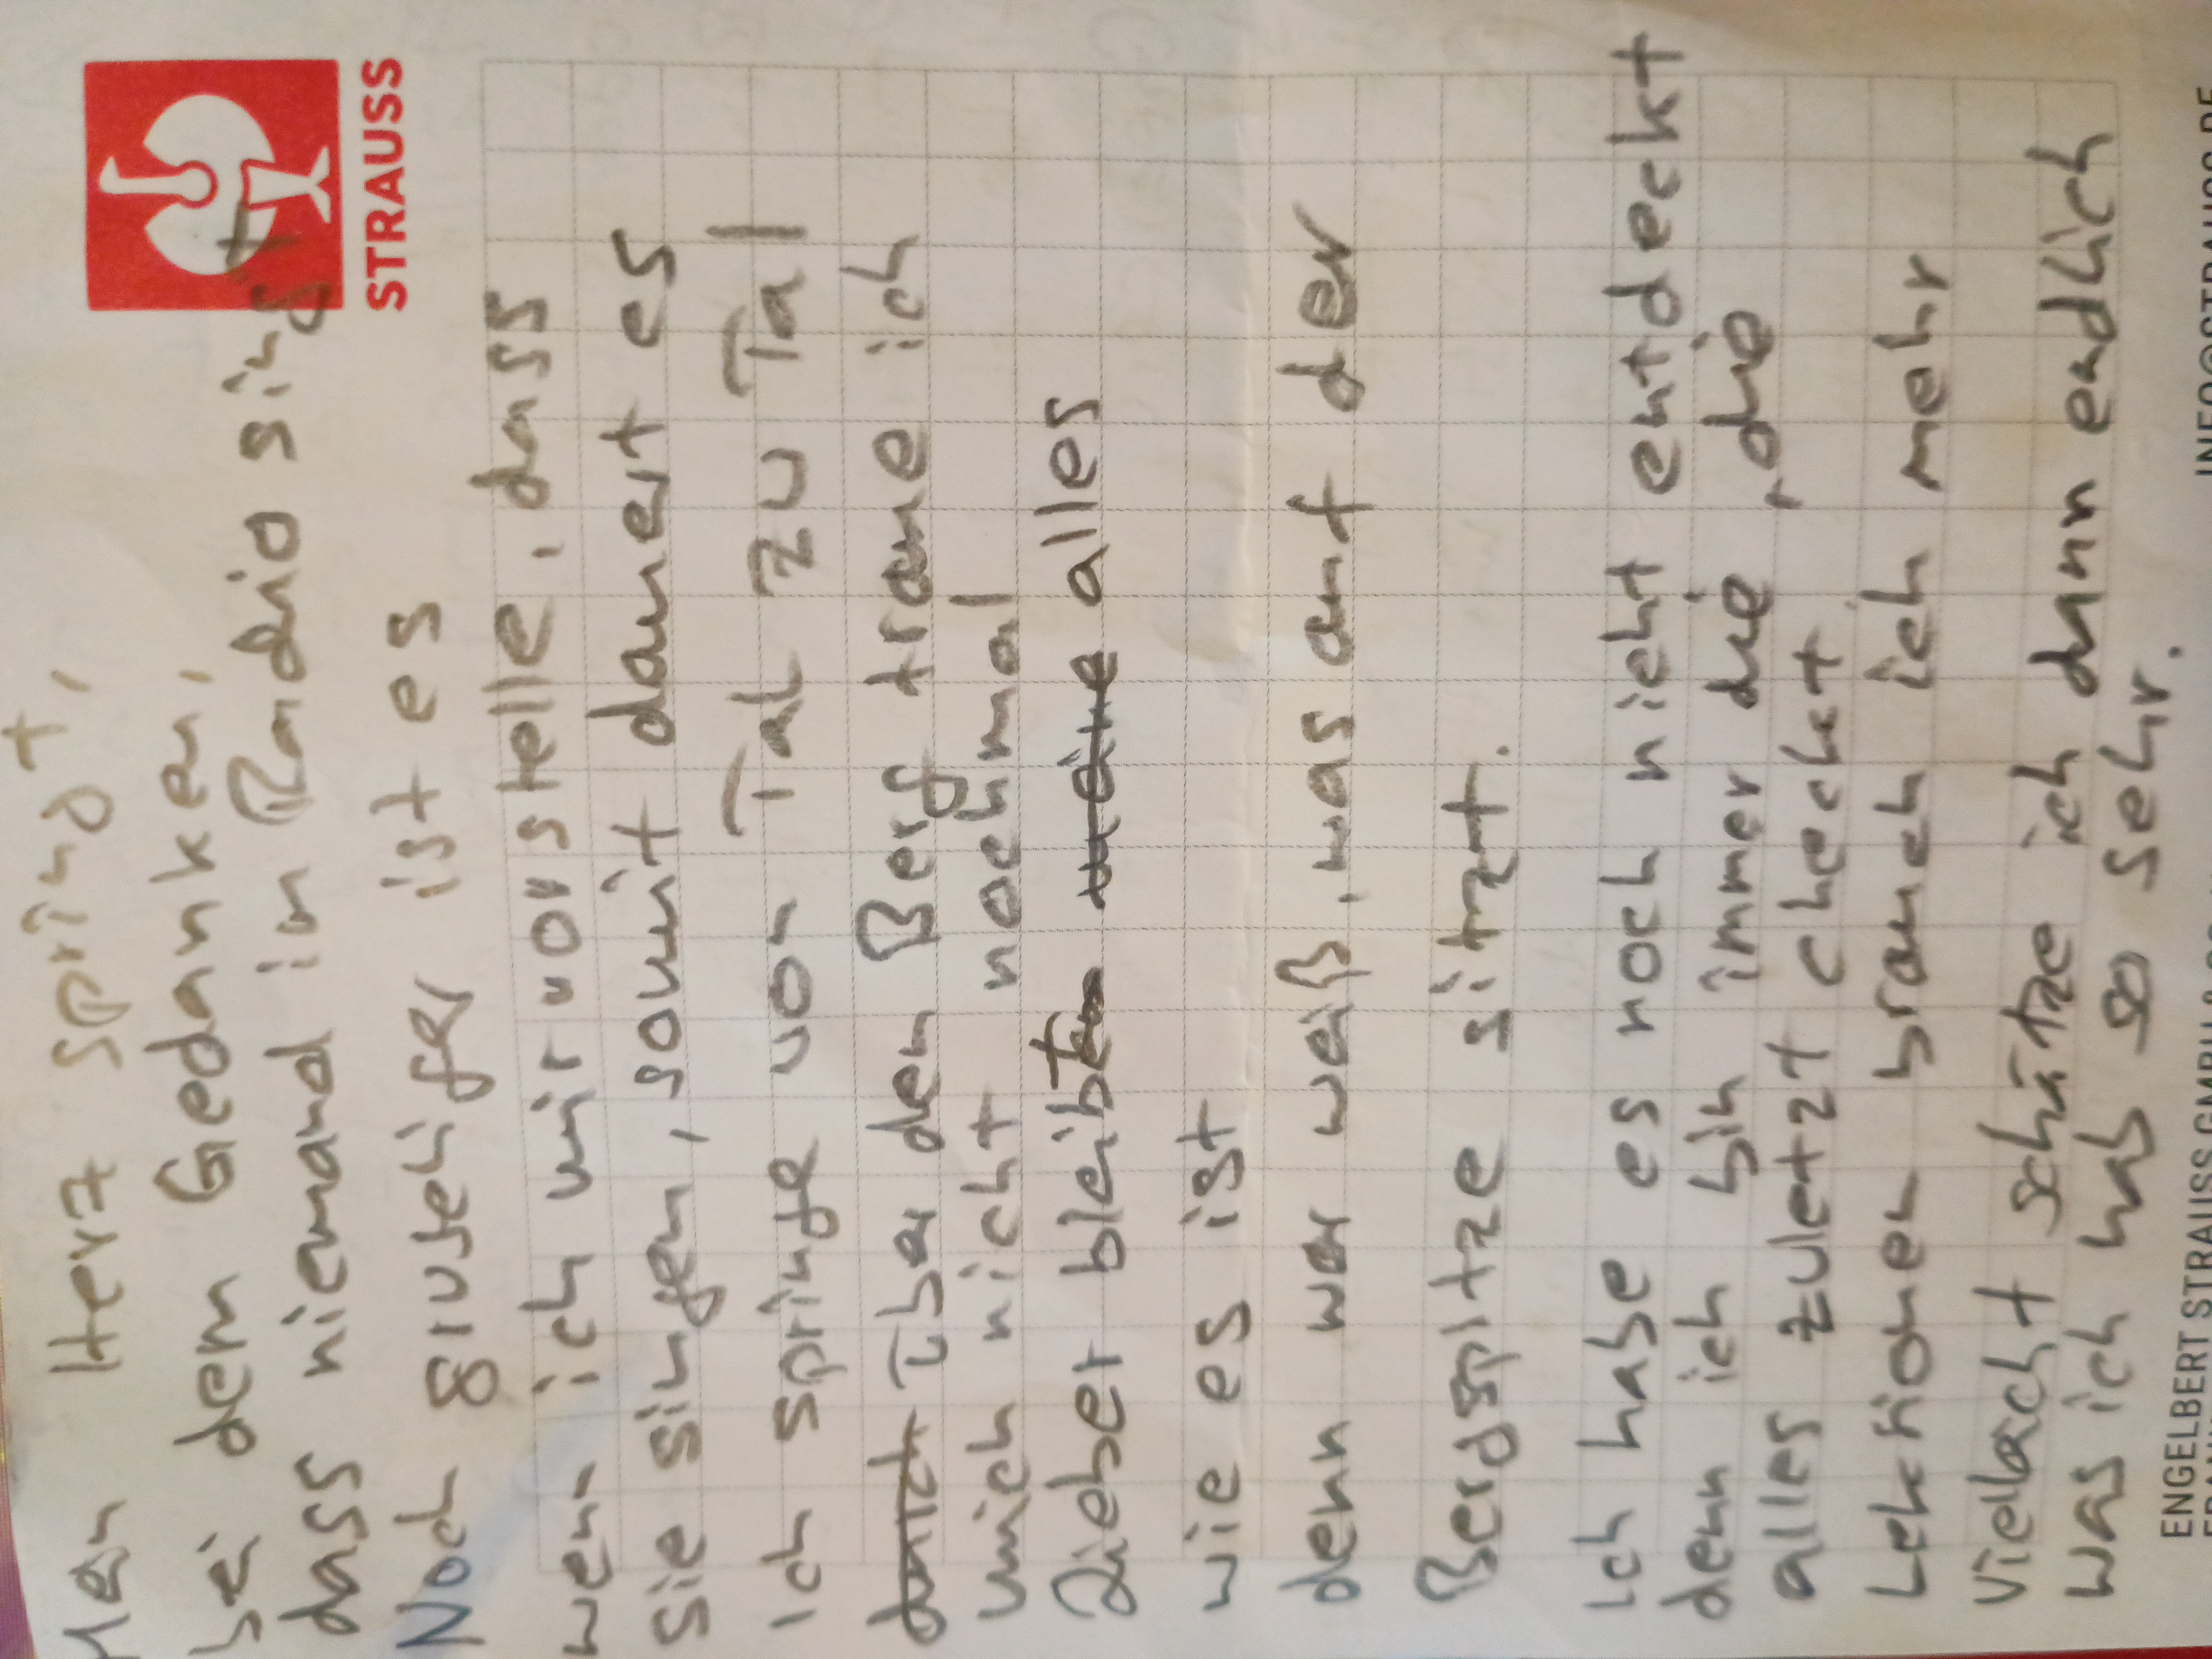 STRAUSS
Herz springt,
bei dem Gedanken,
dass niemand im Radio singt
Noch gruseliger ist es
wenn ich mir vorstelle, dass
sie singen, somit dauert es
Ich springe von Tal zu Tal
durch über den Berg traue ich
mich nicht nochmal
Lieber bleibt alles
wie es ist
denn wer weiß, was auf der
Bergspitze sitzt.
Ich habe es noch nicht entdeckt
denn ich bin immer die, die
alles zuletzt checkt
Lektionen brauch ich mehr
Vielleicht schätze ich dann endlich
was ich hab so sehr.
ENGELBERT STRAUSS GMBH &
INFO@STRAUSS.DE